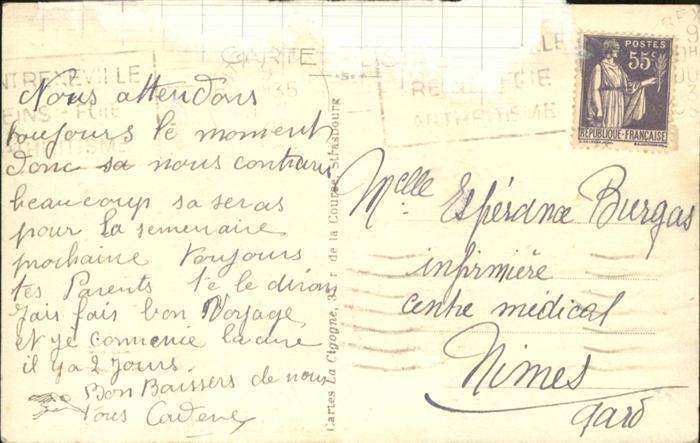 CARTE
NTREXEVILLE
EINS - FOIE
35
RE FOIE
ARTHRITISME
POSTES
55c
REPUBLIQUE-FRANÇAISE
Nous attendons
toujours le moment
donc sa nous contrari
beaucoup sa seras
pour la semenaire
prochaine toujours
tes Parents te le diron
Jais fais bon Voyage
et je commenie la cure
il y a 2 jours.
Bon Baissers de nous
Tous Cadene
Cartes La Cigogne, r. de la Course, Strasbourg
Melle Espérance Burgas
infirmière
centre médical
Nimes
Gard